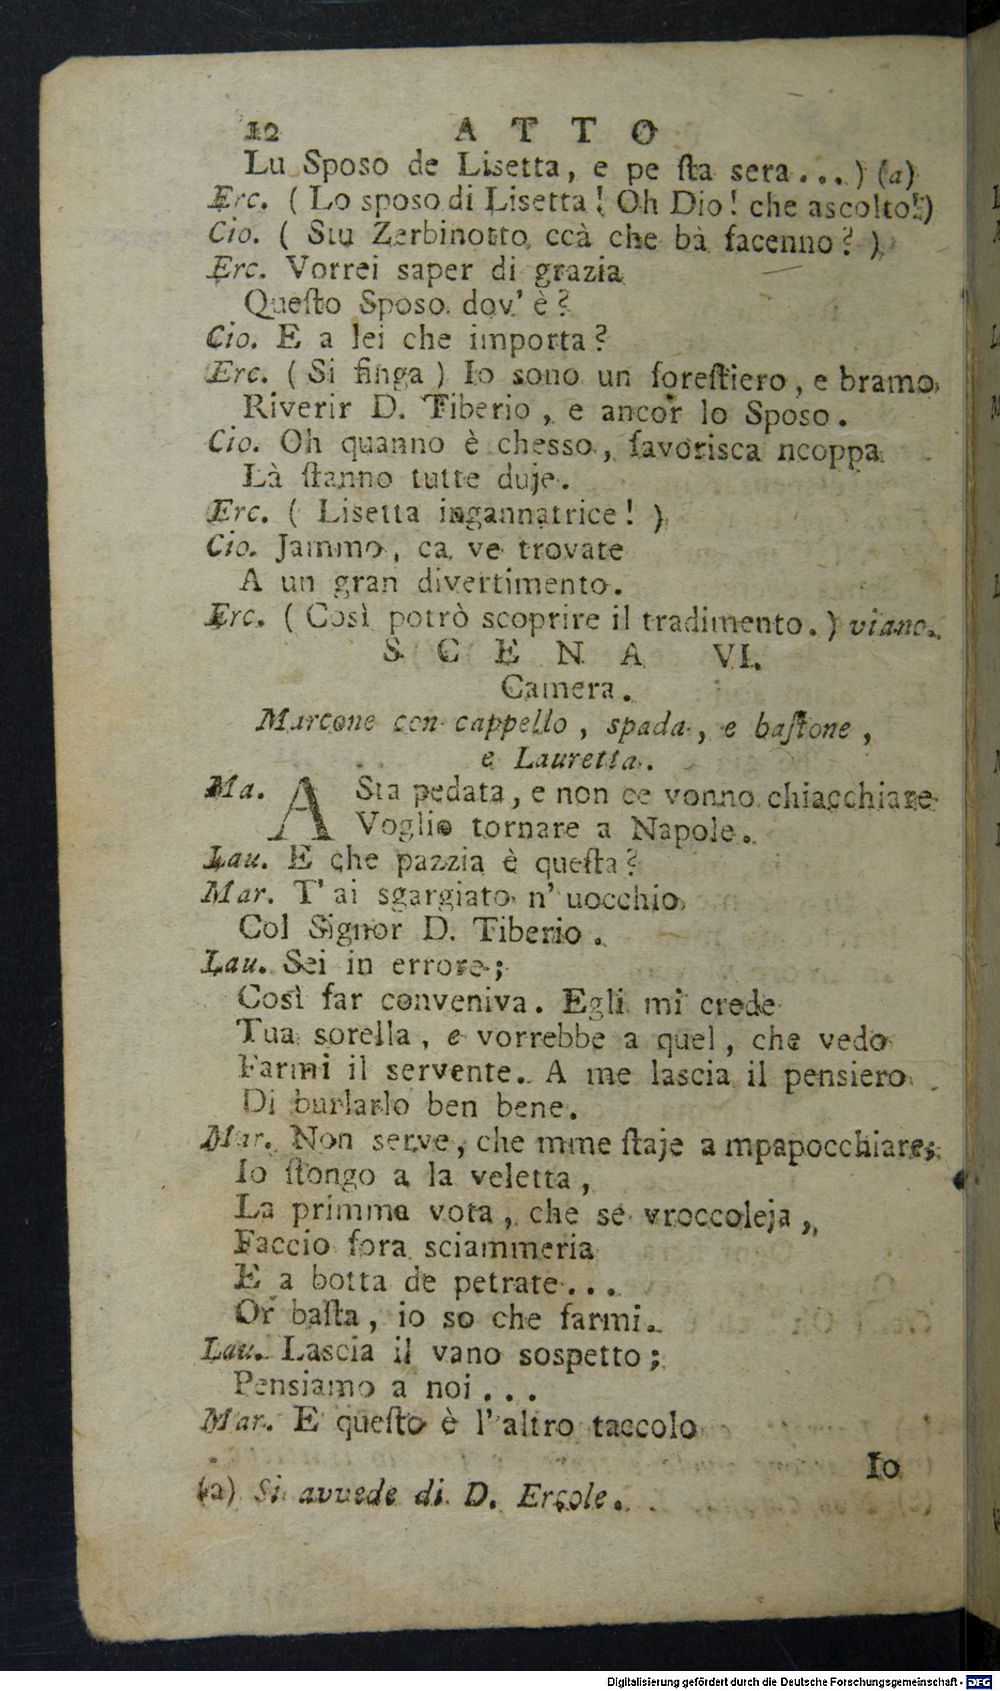 12 A T T O
Lu Sposo de Lisetta, e pe ſta sera...) (a)
Erc. (Lo sposo di Lisetta! Oh Dio! che ascolto!)
Cio. (Stu Zerbinotto ccà che bà facenno?)
Erc. Vorrei saper di grazia
Queſto Sposo dov' è?
Cio. E a lei che importa?
Erc. (Si finga) Io sono un foreſtiero, e bramo
Riverir D. Tiberio, e ancor lo Sposo.
Cio. Oh quanno è chesso, favorisca ncoppa
Là ſtanno tutte duje.
Erc. (Lisetta ingannatrice!)
Cio. Jammo, ca ve trovate
A un gran divertimento.
Erc. (Così potrò scoprire il tradimento.) viano.
S C E N A VI.
Camera.
Marcone con cappello, spada, e baſtone,
e Lauretta.
Ma. A Sta pedata, e non ce vonno chiacchiare
Voglio tornare a Napole.
Lau. E che pazzia è queſta?
Mar. T' ai sgargiato n' uocchio
Col Signor D. Tiberio.
Lau. Sei in errore;
Così far conveniva. Egli mi crede
Tua sorella, e vorrebbe a quel, che vedo
Farmi il servente. A me lascia il pensiero
Di burlarlo ben bene.
Mar. Non serve, che mme ſtaje a mpapocchiare;
Io ſtongo a la veletta,
La primma vota, che se vroccoleja,
Faccio fora sciammeria
E a botta de petrate...
Or baſta, io so che farmi.
Lau. Lascia il vano sospetto;
Pensiamo a noi...
Mar. E queſto è l' altro taccolo
Io
(a) Si avvede di D. Ercole.
Digitalisierung gefördert durch die Deutsche Forschungsgemeinschaft - DFG